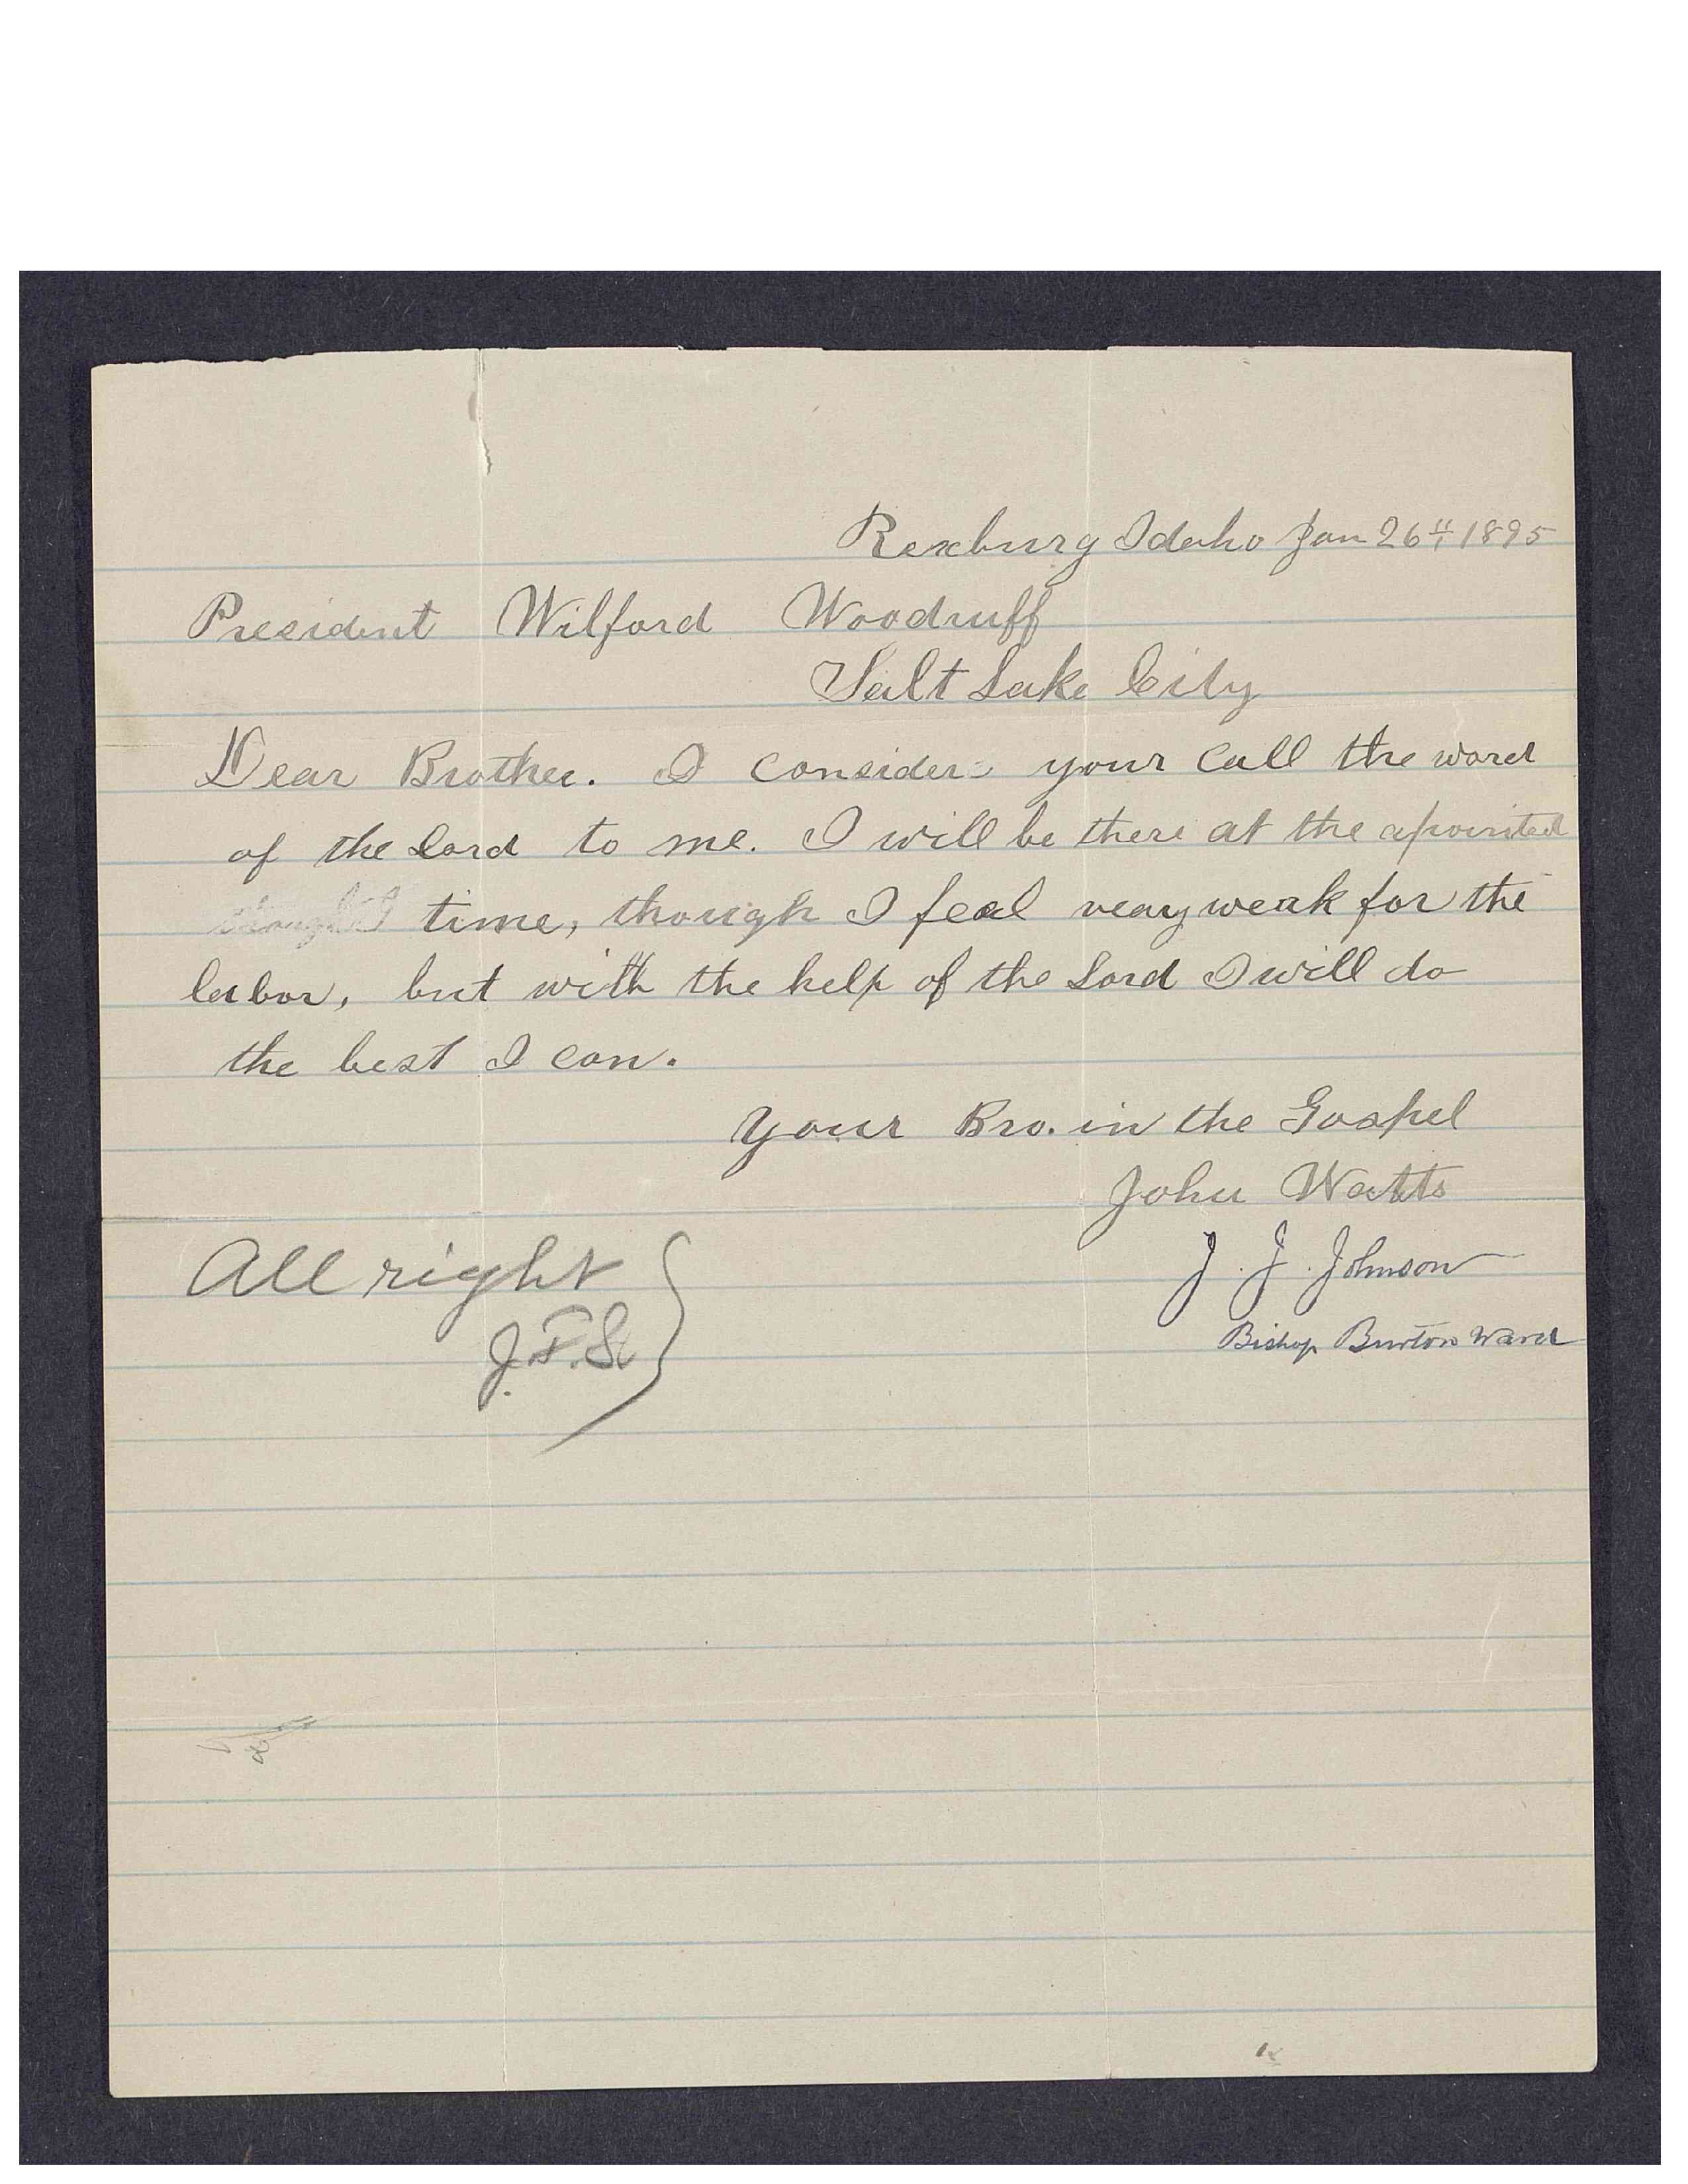 Rexburg Idaho Jan 26th 1895
President Wilford Woodruff
Salt Lake City
Dear Brother. I consider your call the word
of the Lord to me. I will be there at the apointed
time, though I feel very weak for the
labor, but with the help of the Lord I will do
the best I can.
Your Bro. in the Gospel
John Watts
J. J. Johnson
Bishop Burton Ward
All right
J. F. S.